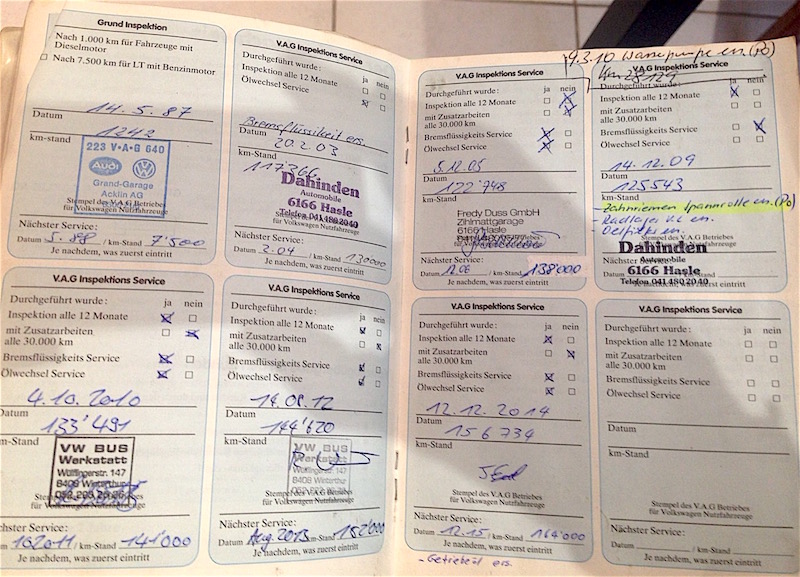 Grund Inspektion
Nach 1.000 km für Fahrzeuge mit
Dieselmotor
Nach 7.500 km für LT mit Benzinmotor
Datum 14.5.87
km-stand 1242
223 V•A•G 640
Audi
Grand-Garage
Acklin AG
Stempel des V.A.G Betriebes
für Volkswagen Nutzfahrzeuge
Nächster Service:
Datum 5.88 /km-Stand 7'500
Je nachdem, was zuerst eintritt
V.A.G Inspektions Service
Durchgeführt wurde: ja nein
Inspektion alle 12 Monate
Ölwechsel Service
Bremsflüssigkeit ers.
Datum 20.2.03
km-Stand 117'266
Dahinden
Automobile
6166 Hasle
Telefon 041 480 20 40
für Volkswagen Nutzfahrzeuge
Nächster Service:
Datum 2.04 /km-Stand 130000
Je nachdem, was zuerst eintritt
V.A.G Inspektions Service
Durchgeführt wurde: ja nein
Inspektion alle 12 Monate
mit Zusatzarbeiten
alle 30.000 km
Bremsflüssigkeits Service
Ölwechsel Service
4.10.2010
Datum
133'491
km-Stand
VW BUS
Werkstatt
Wülflingerstr. 147
8408 Winterthur
für Volkswagen Nutzfahrzeuge
Nächster Service:
/km-Stand 141'000
Je nachdem, was zuerst eintritt
V.A.G Inspektions Service
Durchgeführt wurde: ja nein
Inspektion alle 12 Monate
mit Zusatzarbeiten
alle 30.000 km
Bremsflüssigkeits Service
Ölwechsel Service
14.08.12
Datum
144'620
km-Stand
VW BUS
Werkstatt
Wülflingerstr. 147
8408 Winterthur
Stempel des V.A.G Betriebes
für Volkswagen Nutzfahrzeuge
Nächster Service:
Datum Aug. 2013 /km-Stand 152'000
Je nachdem, was zuerst eintritt
V.A.G Inspektions Service
Durchgeführt wurde: ja nein
Inspektion alle 12 Monate
mit Zusatzarbeiten
alle 30.000 km
Bremsflüssigkeits Service
Ölwechsel Service
5.12.05
Datum
122'748
km-Stand
Fredy Duss GmbH
Zihlmattgarage
6166 Hasle
für Volkswagen Nutzfahrzeuge
Nächster Service:
Datum 12.06 /km-Stand 138'000
Je nachdem, was zuerst eintritt
19.3.10 Wasserpumpe en. (Po)
km 28129
V.A.G Inspektions Service
Durchgeführt wurde: ja nein
Inspektion alle 12 Monate
mit Zusatzarbeiten
alle 30.000 km
Bremsflüssigkeits Service
Ölwechsel Service
14.12.09
Datum
125543
km-Stand
- Zahnriemen Spannrolle en. (Po)
- Radlager
Stempel des V.A.G Betriebes
für Volkswagen Nutzfahrzeuge
Dahinden
Automobile
6166 Hasle
Telefon 041 480 20 40
Nächster Service:
Datum /km-Stand
Je nachdem, was zuerst eintritt
V.A.G Inspektions Service
Durchgeführt wurde: ja nein
Inspektion alle 12 Monate
mit Zusatzarbeiten
alle 30.000 km
Bremsflüssigkeits Service
Ölwechsel Service
12.12.2014
Datum
156734
km-Stand
Stempel des V.A.G Betriebes
für Volkswagen Nutzfahrzeuge
Nächster Service:
Datum 12.15 /km-Stand 164'000
Je nachdem, was zuerst eintritt
- Getriebeöl ers.
V.A.G Inspektions Service
Durchgeführt wurde: ja nein
Inspektion alle 12 Monate
mit Zusatzarbeiten
alle 30.000 km
Bremsflüssigkeits Service
Ölwechsel Service
Datum
km-Stand
Stempel des V.A.G Betriebes
für Volkswagen Nutzfahrzeuge
Nächster Service:
Datum /km-Stand
Je nachdem, was zuerst eintritt